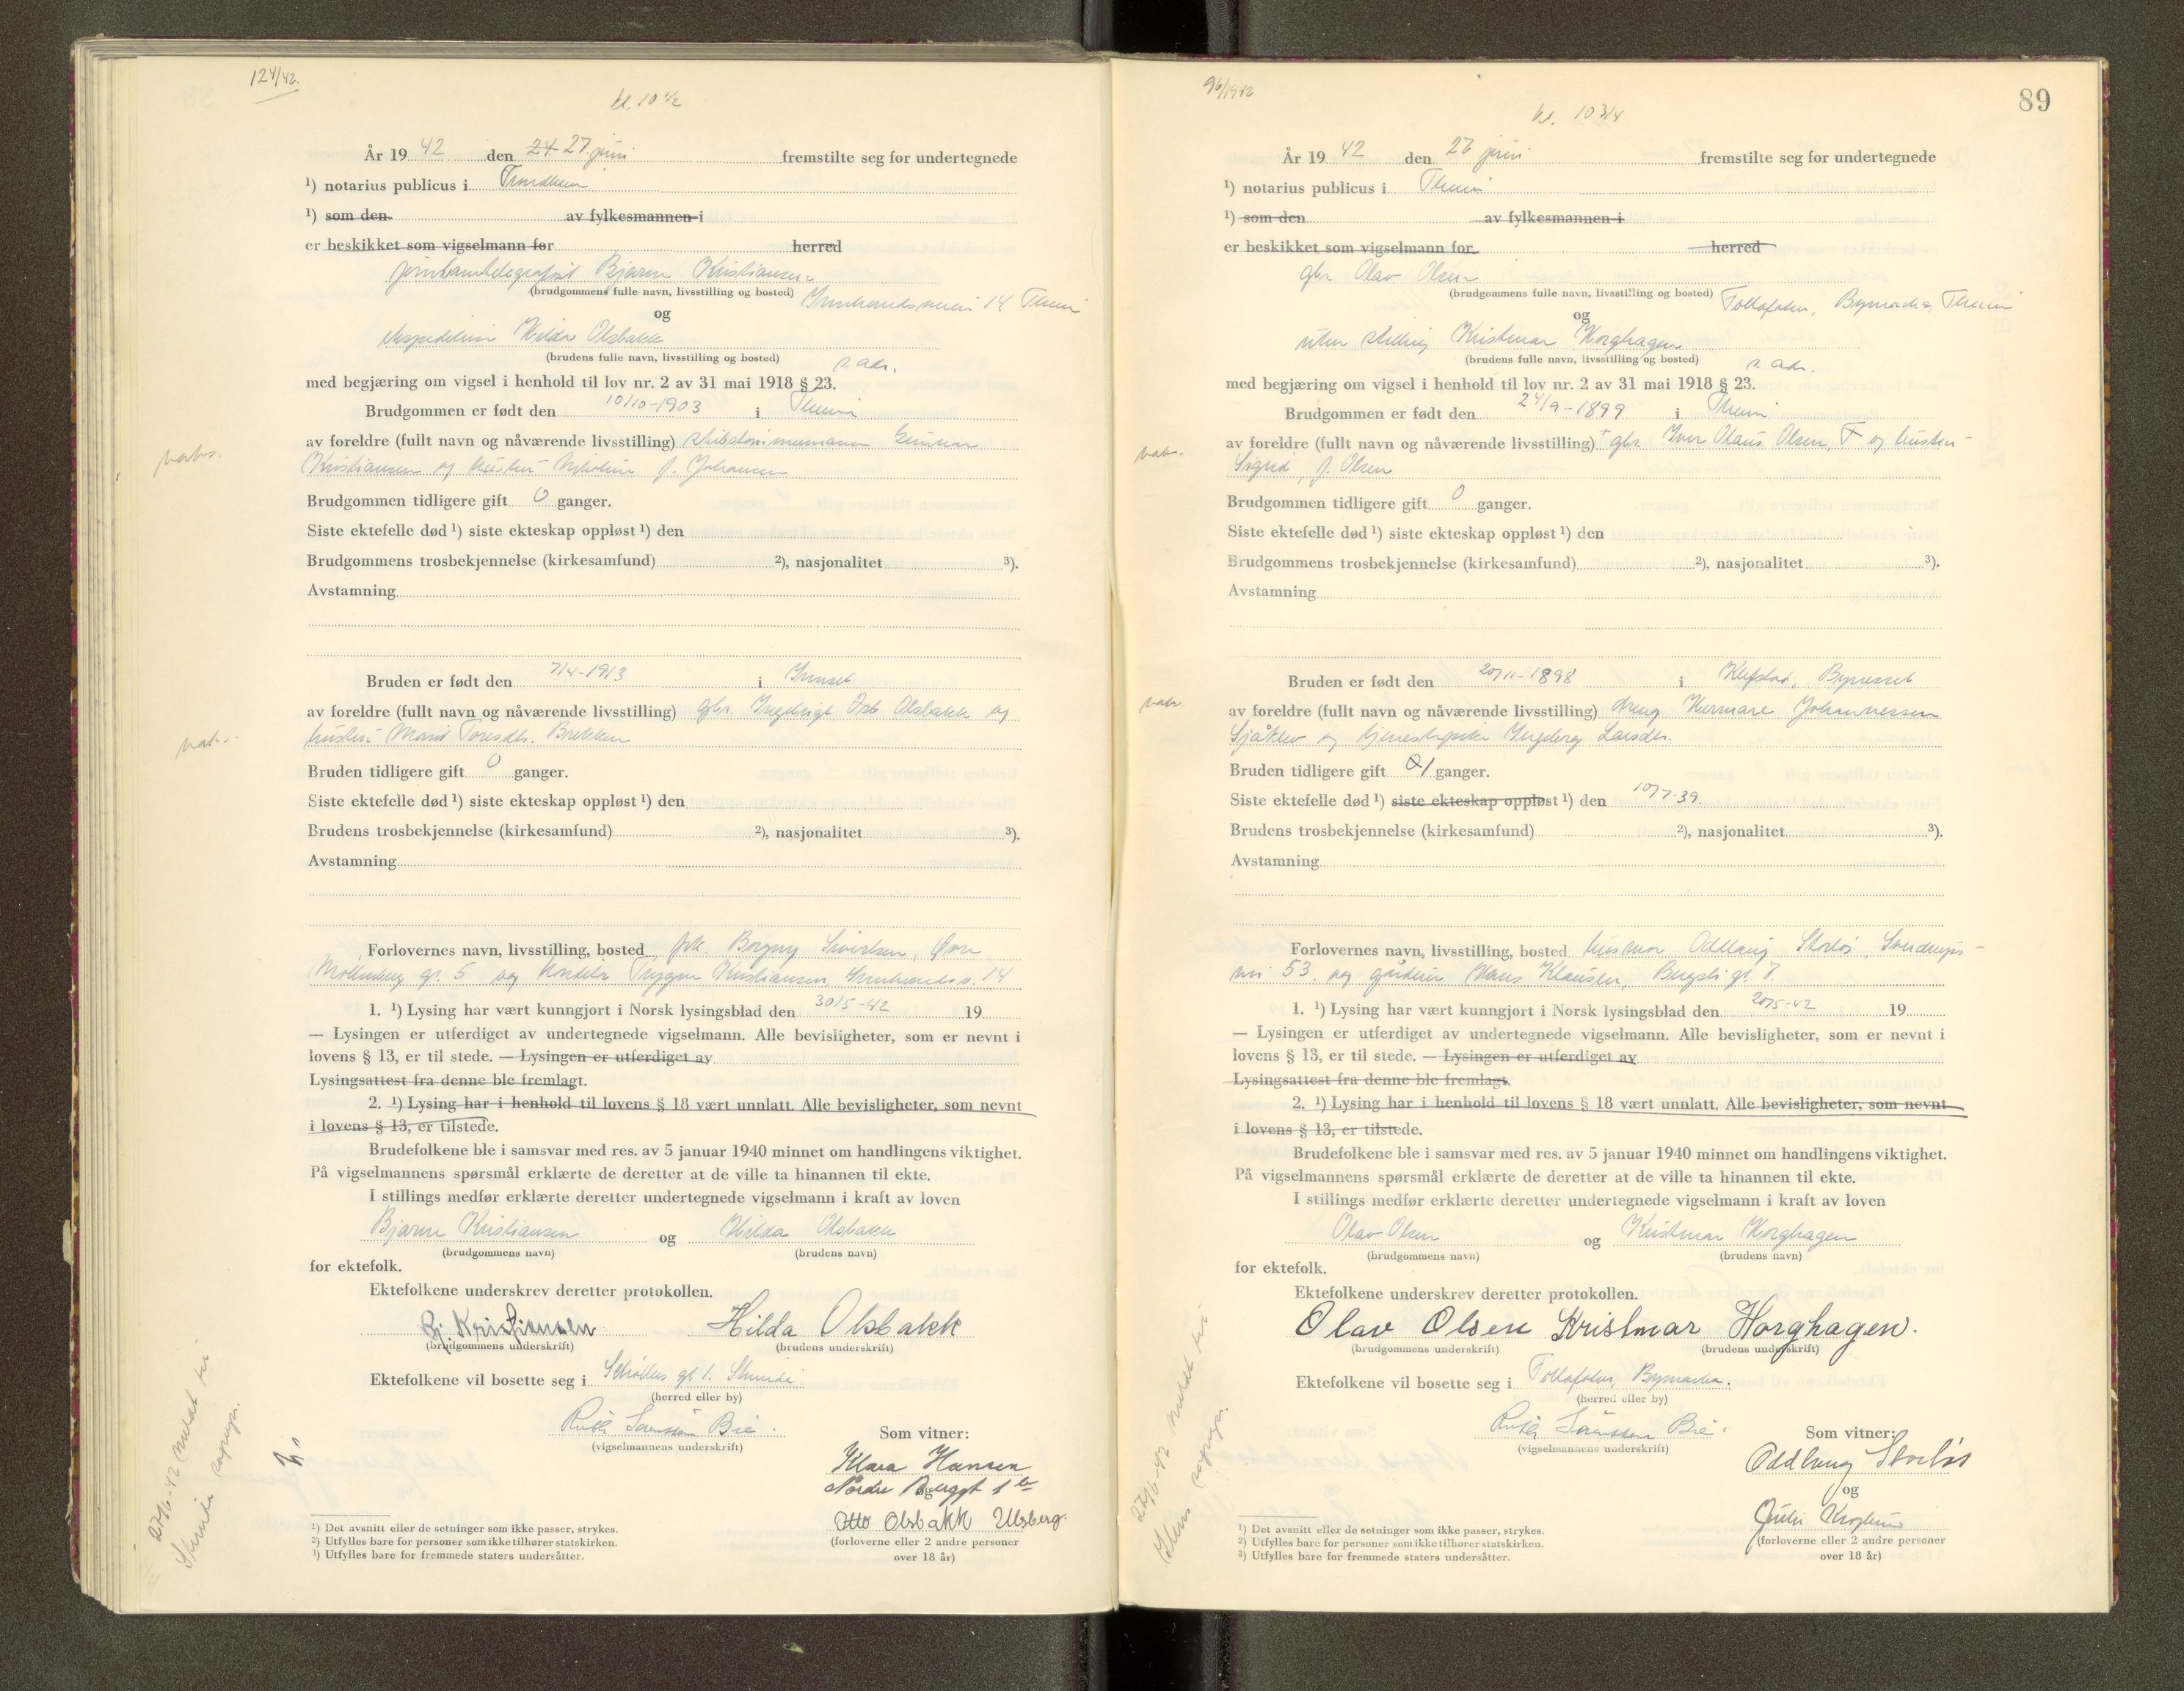 124/42.
kl. 10 1/2
År 19 42 den 24 27 juni fremstilte seg for undertegnede
1) notarius publicus i Trondheim
1) som den av fylkesmannen i
er beskikket som vigselmann for herred
Bjarne Kristiansen
(brudgommens fulle navn, livsstilling og bosted) Innherredsveien 14 Theim
og
Hilda Olsbakk
(brudens fulle navn, livsstilling og bosted)
s. adr.
med begjæring om vigsel i henhold til lov nr. 2 av 31 mai 1918 § 23.
Brudgommen er født den 10/10-1903 i Theim
av foreldre (fullt navn og nåværende livsstilling)
Kristiansen og hustru f. Johansen
Brudgommen tidligere gift 0 ganger.
Siste ektefelle død 1) siste ekteskap oppløst 1) den
Brudgommens trosbekjennelse (kirkesamfund) 2), nasjonalitet 3).
Avstamning
Bruden er født den 7/4-1913 i Innset
av foreldre (fullt navn og nåværende livsstilling) gbr. Ingebrigt Olsbakk og
hustru Marit Toresdtr. Brekken
Bruden tidligere gift 0 ganger.
Siste ektefelle død 1) siste ekteskap oppløst 1) den
Brudens trosbekjennelse (kirkesamfund) 2), nasjonalitet 3).
Avstamning
Forlovernes navn, livsstilling, bosted frk. Borgny Sivertsen, Øvre
Møllenberg gt. 5 og Trygve Kristiansen, Innherredsv. 14
1. 1) Lysing har vært kunngjort i Norsk lysingsblad den 30/5-42 19
— Lysingen er utferdiget av undertegnede vigselmann. Alle bevisligheter, som er nevnt i
lovens § 13, er til stede. — Lysingen er utferdiget av
Lysingsattest fra denne ble fremlagt.
2. 1) Lysing har i henhold til lovens § 18 vært unnlatt. Alle bevisligheter, som nevnt
i lovens § 13, er tilstede.
Brudefolkene ble i samsvar med res. av 5 januar 1940 minnet om handlingens viktighet.
På vigselmannens spørsmål erklærte de deretter at de ville ta hinannen til ekte.
I stillings medfør erklærte deretter undertegnede vigselmann i kraft av loven
Bjarne Kristiansen og Hilda Olsbakk
(brudgommens navn) (brudens navn)
for ektefolk.
Ektefolkene underskrev deretter protokollen.
Bj. Kristiansen Hilda Olsbakk
(brudgommens underskrift) (brudens underskrift)
Ektefolkene vil bosette seg i Schøllers gt 1. Strinda
(herred eller by)
Ruth Sørenssen Bie.
(vigselmannens underskrift)
Som vitner:
Klara Hansen
Nordre Berggt 1 b
og
Otto Olsbakk Ulsberg.
(forloverne eller 2 andre personer
over 18 år)
1) Det avsnitt eller de setninger som ikke passer, strykes.
2) Utfylles bare for personer som ikke tilhører statskirken.
3) Utfylles bare for fremmede staters undersåtter.
27/6-42 meldt til
Strinda sognepr.
96/1942
89
kl. 10 3/4
År 19 42 den 27 juni fremstilte seg for undertegnede
1) notarius publicus i Theim
1) som den av fylkesmannen i
er beskikket som vigselmann for herred
gbr. Olav Olsen
(brudgommens fulle navn, livsstilling og bosted) Bymarka, Theim
og
uten stilling Kristmar Horghagen
(brudens fulle navn, livsstilling og bosted)
s. adr.
med begjæring om vigsel i henhold til lov nr. 2 av 31 mai 1918 § 23.
Brudgommen er født den 24/9-1899 i Theim
av foreldre (fullt navn og nåværende livsstilling) gbr. Iver Olaus Olsen, og hustru
Sigrid, f. Olsen
Brudgommen tidligere gift 0 ganger.
Siste ektefelle død 1) siste ekteskap oppløst 1) den
Brudgommens trosbekjennelse (kirkesamfund) 2), nasjonalitet 3).
Avstamning
Bruden er født den 20/11-1898 i Klefstad, Byneset
av foreldre (fullt navn og nåværende livsstilling) dreng Johannessen
og tjenestepike Ingeborg Larsdtr.
Bruden tidligere gift 0 1 ganger.
Siste ektefelle død 1) siste ekteskap oppløst 1) den 10/7-39.
Brudens trosbekjennelse (kirkesamfund) 2), nasjonalitet 3).
Avstamning
Forlovernes navn, livsstilling, bosted husmor Oddlaug Storløs,
53. og Hans Klausen, gt. 7.
1. 1) Lysing har vært kunngjort i Norsk lysingsblad den 20/5-42 19
— Lysingen er utferdiget av undertegnede vigselmann. Alle bevisligheter, som er nevnt i
lovens § 13, er til stede. — Lysingen er utferdiget av
Lysingsattest fra denne ble fremlagt.
2. 1) Lysing har i henhold til lovens § 18 vært unnlatt. Alle bevisligheter, som nevnt
i lovens § 13, er tilstede.
Brudefolkene ble i samsvar med res. av 5 januar 1940 minnet om handlingens viktighet.
På vigselmannens spørsmål erklærte de deretter at de ville ta hinannen til ekte.
I stillings medfør erklærte deretter undertegnede vigselmann i kraft av loven
Olav Olsen og Kristmar Horghagen
(brudgommens navn) (brudens navn)
for ektefolk.
Ektefolkene underskrev deretter protokollen.
Olav Olsen Kristmar Horghagen.
(brudgommens underskrift) (brudens underskrift)
Ektefolkene vil bosette seg i Bymarka.
(herred eller by)
Ruth Sørenssen Bie.
(vigselmannens underskrift)
Som vitner:
Oddlaug Storløs
og
(forloverne eller 2 andre personer
over 18 år)
1) Det avsnitt eller de setninger som ikke passer, strykes.
2) Utfylles bare for personer som ikke tilhører statskirken.
3) Utfylles bare for fremmede staters undersåtter.
27/6-42 meldt til
Ilens sognepr.